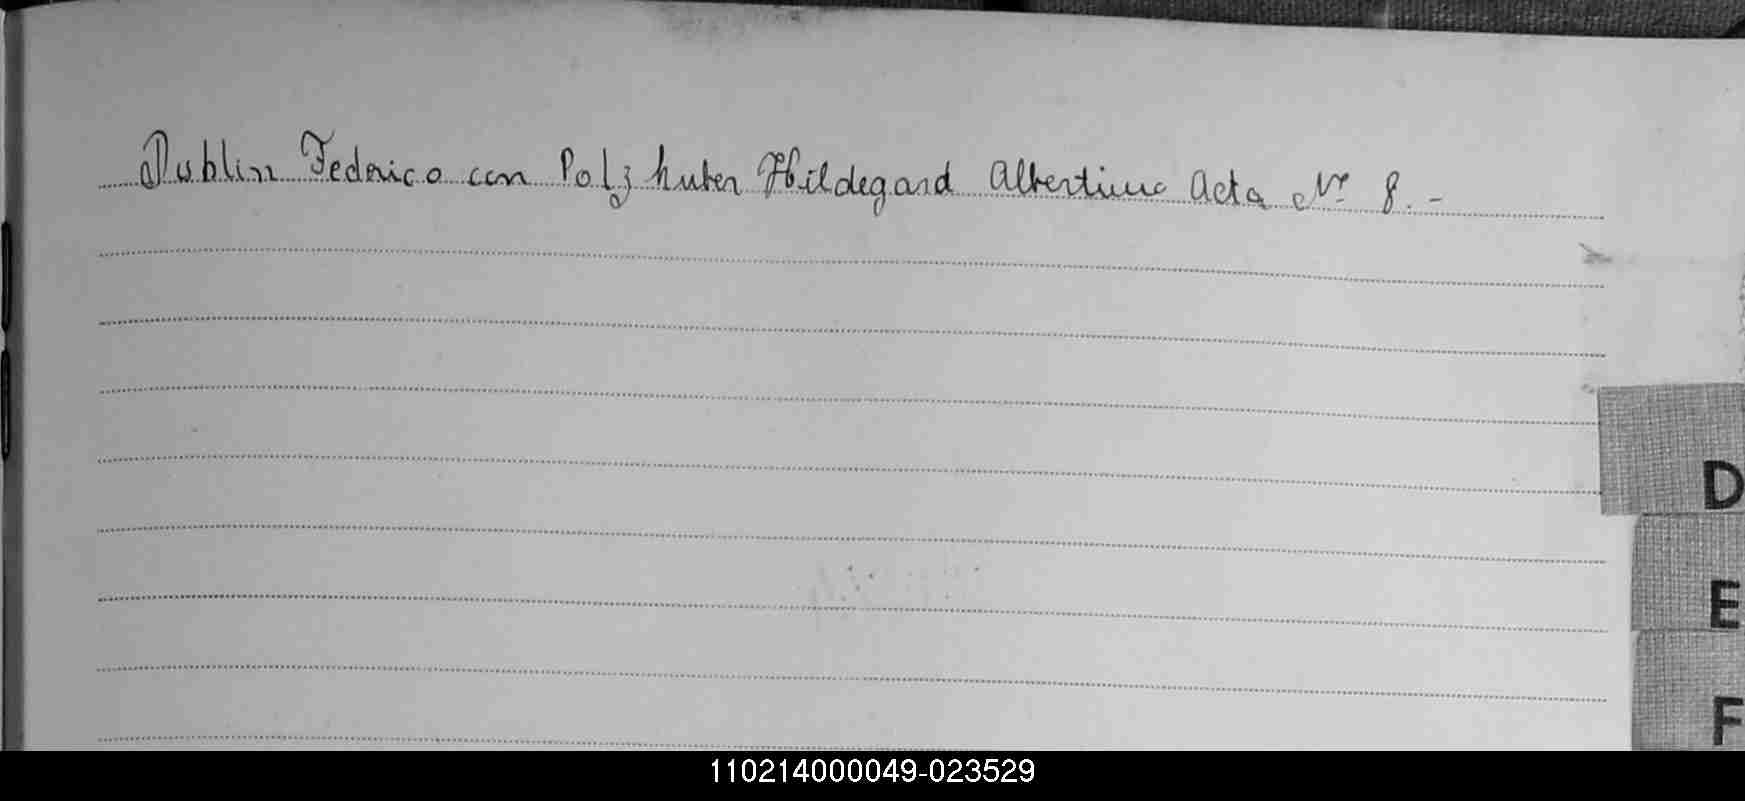 Dublin Federico con Polzhuber Hildegard Albertine Acta Nº 8.-
D
E
F
110214000049-023529